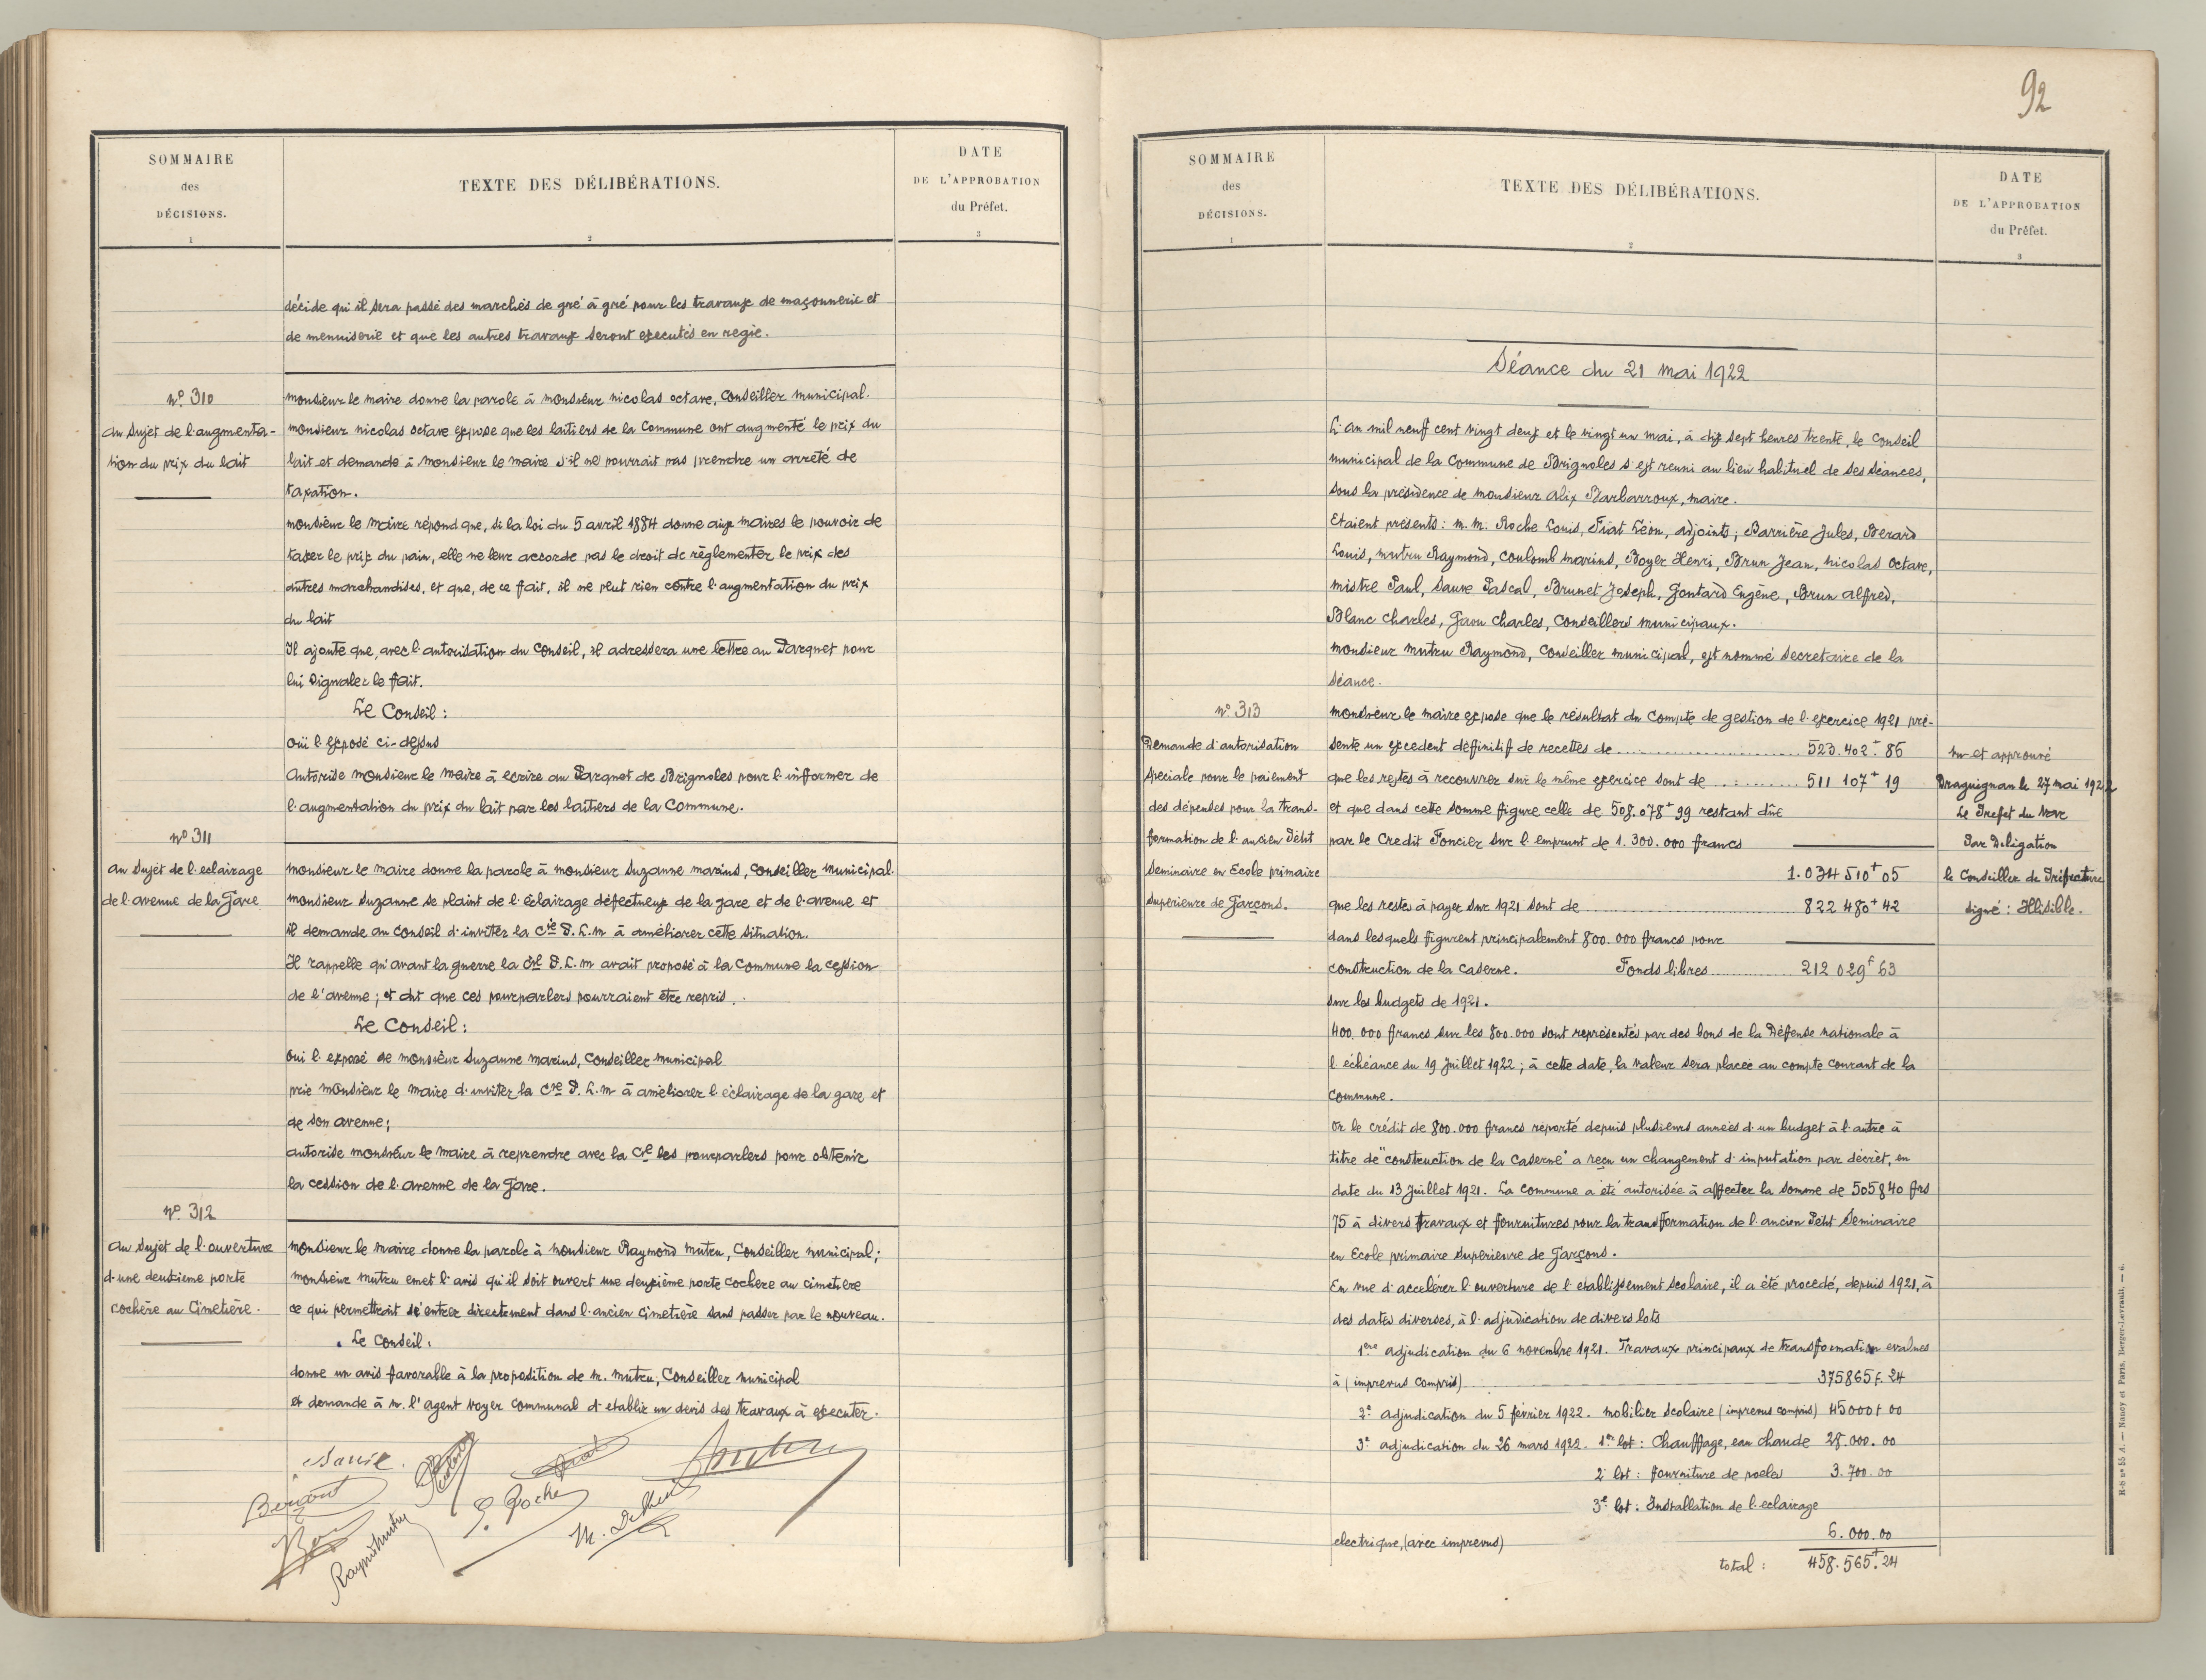 SOMMAIRE
des
DÉCISIONS.
1
TEXTE DES DÉLIBÉRATIONS.
2
DATE
DE L'APPROBATION
du Préfet.
3
décide qu'il sera passé des marchés de gré à gré pour les travaux de maçonnerie et
de menuiserie et que les autres travaux seront executés en regie.
nº 310
au sujet de l'augmenta-
tion du prix du lait
monsieur le maire donne la parole à monsieur nicolas octave, conseiller municipal.
monsieur nicolas octave expose que les laitiers de la Commune ont augmenté le prix du
lait et demande à monsieur le maire s'il ne pourrait pas prendre un arreté de
taxation.
monsieur le maire répond que, si la loi du 5 avril 1884 donne aux maires le pouvoir de
taxer le prix du pain, elle ne leur accorde pas le droit de règlementer le prix des
autres marchandises, et que, de ce fait, il ne peut rien contre l'augmentation du prix
du lait
Il ajoute que, avec l'autorisation du Conseil, il adressera une lettre au Parquet pour
lui signaler le fait.
Le Conseil :
ouï l'exposé ci-dessus
Autorise monsieur le maire à ecrire au Parquet de Brignoles pour l'informer de
l'augmentation du prix du lait par les laitiers de la Commune.
nº 311
au sujet de l'eclairage
de l'avenue de la Gare
monsieur le maire donne la parole à monsieur Suzanne marius, conseiller municipal.
monsieur Suzanne se plaint de l'éclairage défectueux de la gare et de l'avenue et
il demande au conseil d'inviter la Cie P. L. M à améliorer cette situation.
Il rappelle qu'avant la guerre la Cie P. L. M avait proposé à la commune la cession
de l'avenue ; et dit que ces pourparlers pourraient être repris.
Le Conseil :
oui l'exposé de monsieur Suzanne marius, conseiller municipal
prie monsieur le maire d'inviter la Cie P. L. M à améliorer l'éclairage de la gare et
de son avenue ;
autorise monsieur le maire à reprendre avec la Cie les pourparlers pour obtenir
la cession de l'avenue de la Gare.
nº 312
au sujet de l'ouverture
d'une deuxieme porte
cochère au Cimetière.
monsieur le maire donne la parole à monsieur Raymond mutru, conseiller municipal ;
monsieur mutru emet l'avis qu'il soit ouvert une deuxième porte cochere au cimetiere
ce qui permettrait d'entrer directement dans l'ancien cimetière sans passer par le nouveau.
Le Conseil :
donne un avis favorable à la proposition de m. mutru, conseiller municipal
et demande à m. l'agent voyer communal d'etablir un devis des travaux à executer.
Raymd mutru
Roche
92
SOMMAIRE
des
DÉCISIONS.
1
TEXTE DES DÉLIBÉRATIONS.
2
DATE
DE L'APPROBATION
du Préfet.
3
Séance du 21 mai 1922
L'an mil neuf cent vingt deux et le vingt un mai, à dix sept heures trente, le conseil
municipal de la Commune de Brignoles s'est reuni au lieu habituel de ses séances,
sous la présidence de monsieur Alix Barbarroux, maire.
Etaient présents : m. m. Roche Louis, Fiat Léon, adjoints ; Barrière Jules, Berard
Louis, mutru Raymond, coulomb marius, Boyer Henri, Brun Jean, nicolas octave,
mistre Paul, Sauve Pascal, Brunet Joseph, Gontard Eugène, Brun alfred,
Blanc charles, Gaou charles, conseillers municipaux.
monsieur mutru Raymond, conseiller municipal, est nommé secretaire de la
séance.
nº 313
Demande d'autorisation
speciale pour le paiement
des dépenses pour la trans-
formation de l'ancien Petit
Seminaire en Ecole primaire
superieure de Garçons.
monsieur le maire expose que le résultat du compte de gestion de l'exercice 1921 pré-
sente un excedent définitif de recettes de 523.402 f 86
que les restes à recouvrer sur le même exercice sont de 511 107 f 19
et que dans cette somme figure celle de 508.078 f 99 restant dûe
par le Credit Foncier sur l'emprunt de 1.300.000 francs
1.034 510 f 05
que les restes à payer sur 1921 sont de 822 480 f 42
dans lesquels figurent principalement 800.000 francs pour
construction de la caserne. Fonds libres 212 029 f 63
sur les budgets de 1921.
400.000 francs sur les 800.000 sont représentés par des bons de la Défense nationale à
l'échéance du 19 Juillet 1922 ; à cette date, la valeur sera placée au compte courant de la
commune.
Or le crédit de 800.000 francs reporté depuis plusieurs années d'un budget à l'autre à
titre de "construction de la caserne" a reçu un changement d'imputation par décret, en
date du 13 Juillet 1921. La commune a été autorisée à affecter la somme de 505840 frs
75 à divers travaux et fournitures pour la transformation de l'ancien Petit Seminaire
en Ecole primaire superieure de Garçons.
En vue d'accelérer l'ouverture de l'etablissement scolaire, il a été procedé, depuis 1921, à
des dates diverses, à l'adjudication de divers lots
1ere adjudication du 6 novembre 1921. Travaux principaux de transformation evalues
à (imprevus compris) 375865 f. 24
2e adjudication du 5 février 1922. mobilier scolaire (imprevus compris) 45000 f 00
3e adjudication du 26 mars 1922. 1er lot : Chauffage, eau chaude 28.000.00
2e lot : fourniture de poeles 3.700.00
3e lot : Installation de l'eclairage
electrique, (avec imprevus) 6.000.00
total : 458.565 f. 24
vu et approuvé
Draguignan le 27 mai 1922
Le Prefet du Var
Par Délégation
le Conseiller de Préfecture
signé : Illisible.
H-8 nº 55 A. — Nancy et Paris. Berger-Levrault. — 6.